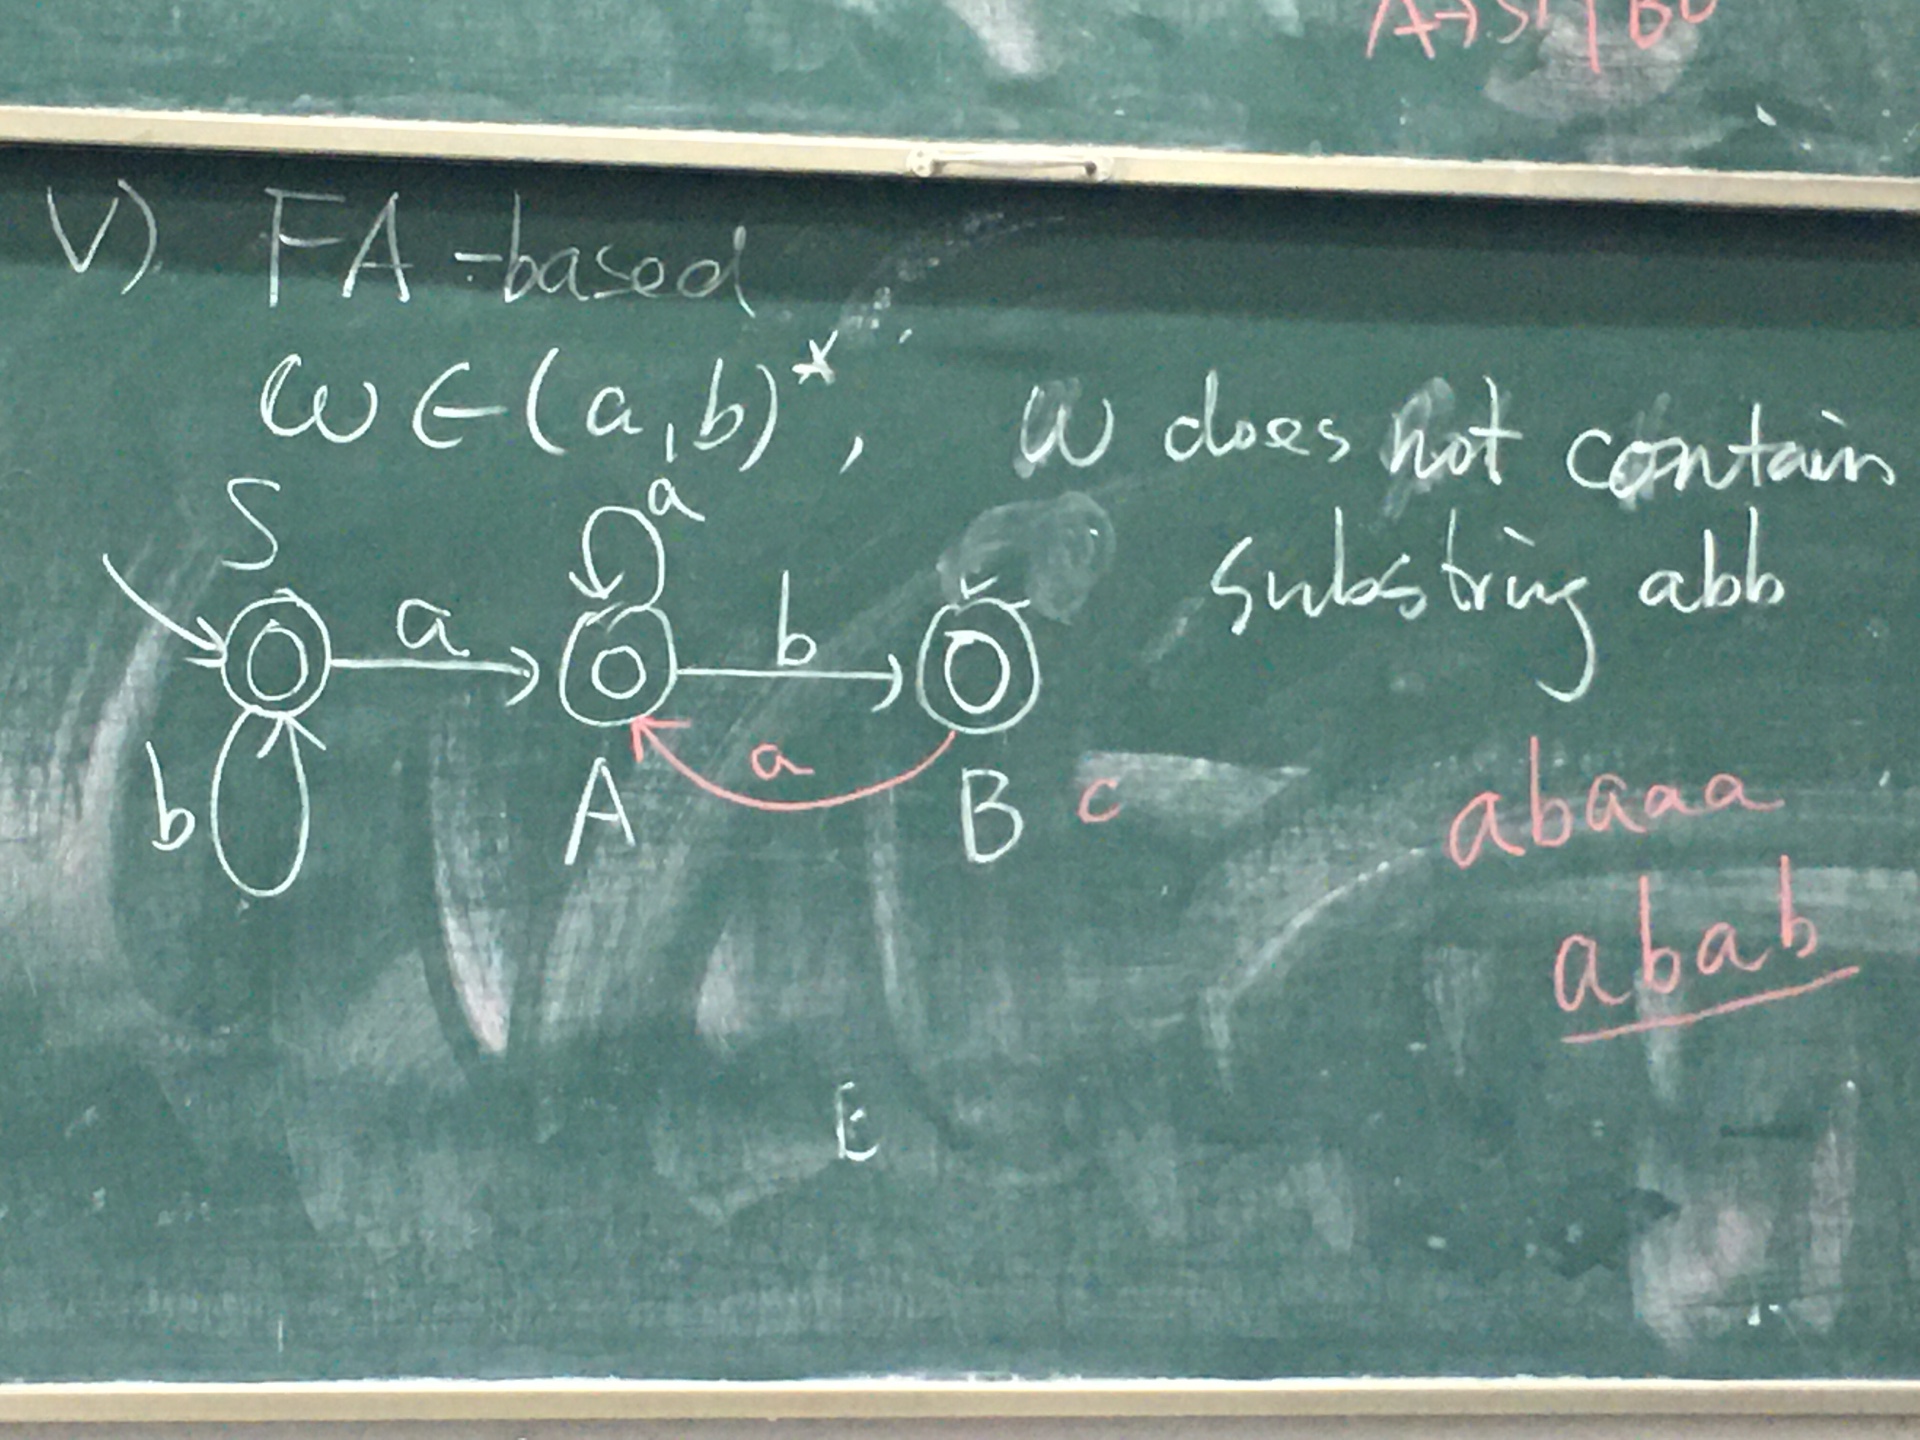 V) FA-based
ω ∈ (a,b)*, ω does not contain
substring abb
S
a
a
b
b
A
a
B
c
abaaa
abab
E